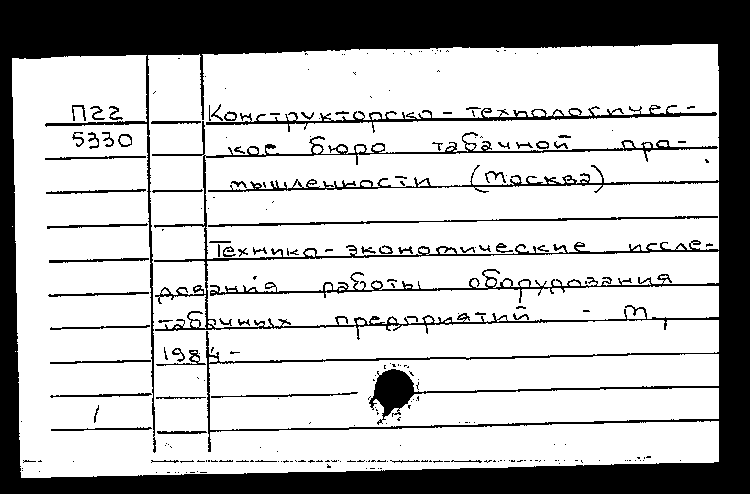 П22
5330
Конструкторско-технологичес-
кое бюро табачной про-
мышленности (Москва)
Технико-экономические иссле-
дования работы оборудования
табачных предприятий - М.,
1984-
1